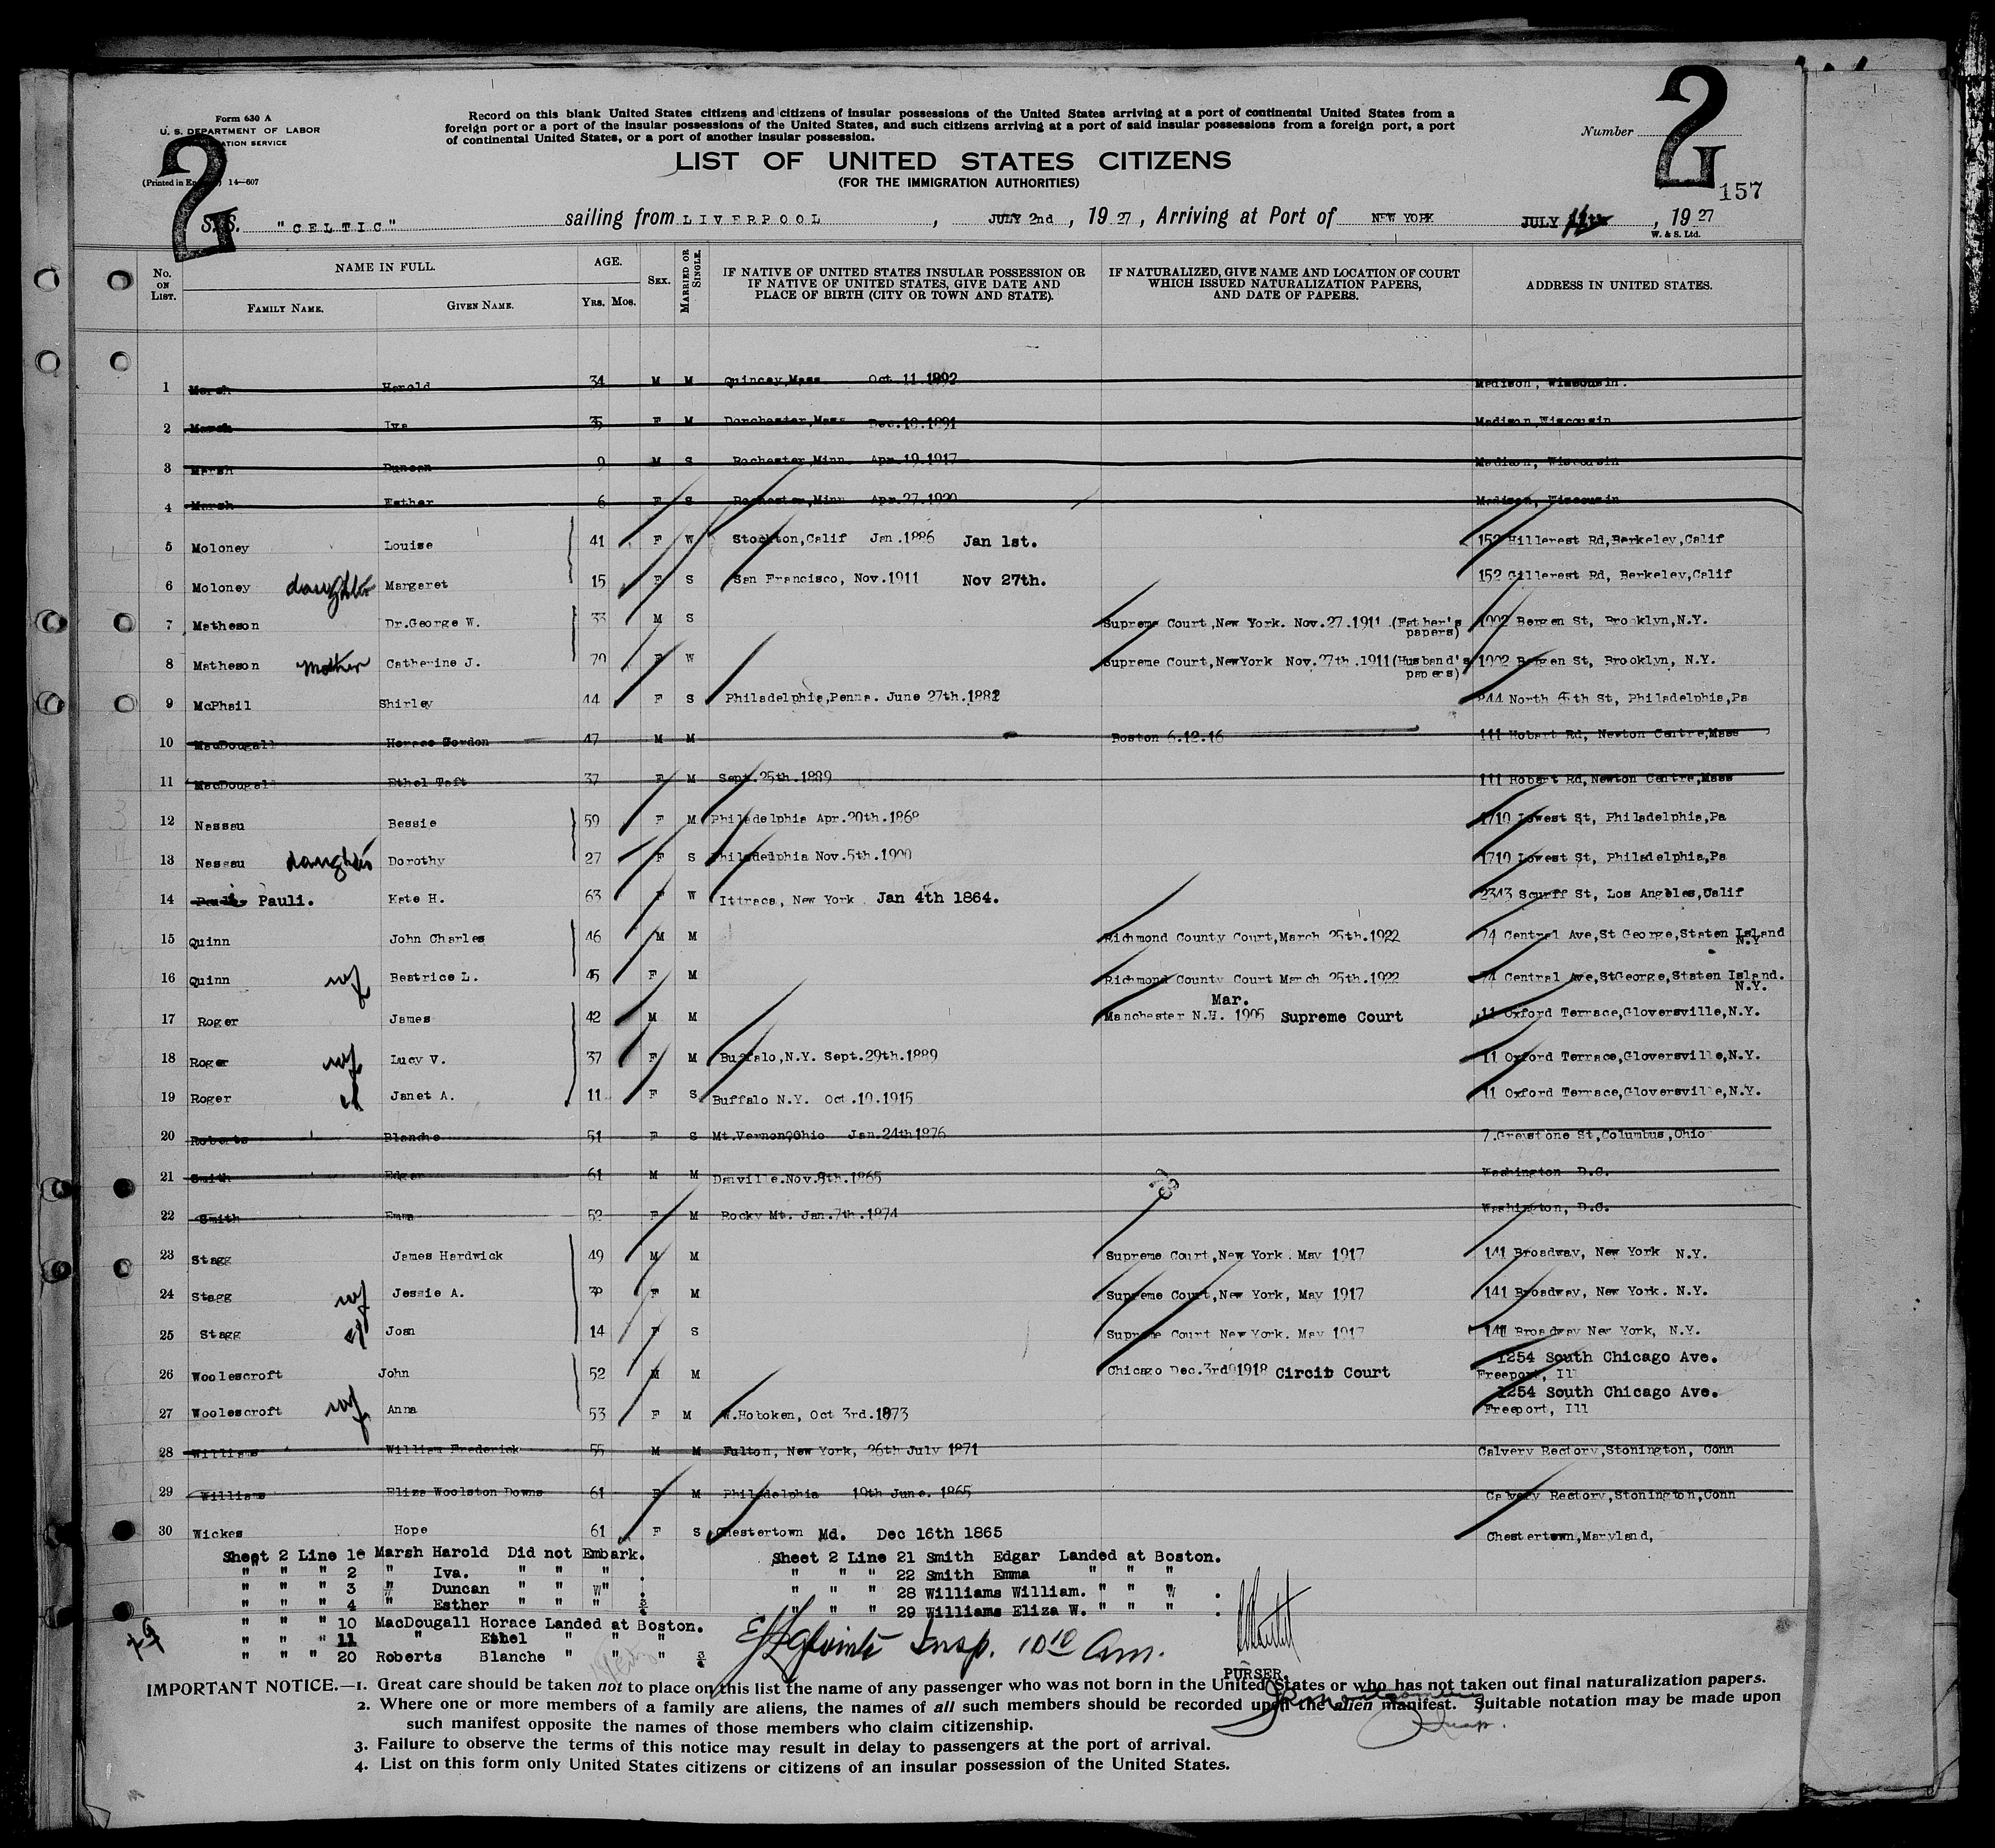 Form 630 A
U. S. DEPARTMENT OF LABOR
ATION SERVICE
(Printed in En 14—607
2
Record on this blank United States citizens and citizens of insular possessions of the United States arriving at a port of continental United States from a
foreign port or a port of the insular possessions of the United States, and such citizens arriving at a port of said insular possessions from a foreign port, a port
of continental United States, or a port of another insular possession.
LIST OF UNITED STATES CITIZENS
(FOR THE IMMIGRATION AUTHORITIES)
Number
2
157
S.S. "CELTIC" sailing from LIVERPOOL , JULY 2nd , 19 27 , Arriving at Port of NEW YORK JULY , 19 27
W. & S. Ltd.
No. ON LIST. NAME IN FULL. FAMILY NAME. GIVEN NAME. AGE. YRS. MOS. SEX. MARRIED OR SINGLE. IF NATIVE OF UNITED STATES INSULAR POSSESSION OR IF NATIVE OF UNITED STATES, GIVE DATE AND PLACE OF BIRTH (CITY OR TOWN AND STATE). IF NATURALIZED, GIVE NAME AND LOCATION OF COURT WHICH ISSUED NATURALIZATION PAPERS, AND DATE OF PAPERS. ADDRESS IN UNITED STATES.
1 Marsh Harold 34 M M Quincey,Mass Oct.11.1892 Madison, Wisconsin.
2 Marsh Iva 35 F M Dorchester,Mass Dec.10.1891 Madison,Wisconsin
3 Marsh Duncan 9 M S Rochester,Minn Apr.19.1917 Madison, Wisconsin
4 Marsh Esther 6 F S Rochester,Minn Apr.27.1920 Madison, Wisconsin
5 Moloney Louise 41 F W Stockton,Calif Jan.1886 Jan 1st. 152 Hillerest Rd,Berkeley,Calif
6 Moloney daughter Margaret 15 F S San Francisco, Nov.1911 Nov 27th. 152 Gillerest Rd, Berkeley,Calif
7 Matheson Dr.George W. 33 M S Supreme Court,New York. Nov.27.1911 (Father's papers) 1002 Bergen St, Brooklyn,N.Y.
8 Matheson mother Catherine J. 70 F W Supreme Court,NewYork Nov.27th.1911(Husband's papers) 1002 Bergen St, Brooklyn, N.Y.
9 McPhail Shirley 44 F S Philadelphia,Penna. June 27th.1882 844 North St, Philadelphia,Pa
10 MacDougall Horace Gordon 47 M M Boston 6.12.16 111 Hobart Rd, Newton Centre,Mass
11 MacDougall Ethel Taft 37 F M Sept.25th.1889 111 Hobart Rd,Newton Centre,Mass
12 Nassau Bessie 59 F M Philadelphia Apr.20th.1868 1710 Lowest St, Philadelphia,Pa
13 Nassau daughter Dorothy 27 F S Philadelphia Nov.5th.1900 1710 Lowest St, Philadelphia,Pa
14 Pauli. Kate H. 63 F W Ittraca, New York Jan 4th 1864. 2343 Scurff St, Los Angeles,Calif
15 Quinn John Charles 46 M M Richmond County Court,March 25th.1922 74 Central Ave,St George,Staten Island N.Y
16 Quinn wf Beatrice L. 45 F M Richmond County Court March 25th.1922 74 Central Ave,StGeorge,Staten Island. N.Y.
17 Roger James 42 M M Manchester N.H. Mar. 1905 Supreme Court 11 Oxford Terrace,Gloversville,N.Y.
18 Roger wf Lucy V. 37 F M Buffalo,N.Y. Sept.29th.1889 11 Oxford Terrace,Gloversville,N.Y.
19 Roger Janet A. 11 F S Buffalo N.Y. Oct.10.1915 11 Oxford Terrace,Gloversville,N.Y.
20 Roberts Blanche 51 F S Mt.Vernon,Ohio Jan.24th1876 7.Greystone St,Columbus,Ohio
21 Smith Edgar 61 M M Danville.Nov.8th.1865 Washington D.C.
22 Smith Emma 52 F M Rocky Mt. Jan.7th.1874 Washington, D.C.
23 Stagg James Hardwick 49 M M Supreme Court,New York. May 1917 141 Broadway, New York N.Y.
24 Stagg wf Jessie A. F M Supreme Court,New York, May 1917 141 Broadway, New York. N.Y.
25 Stagg Joan 14 F S Supreme Court New York. May 1917 141 Broadway New York, N.Y.
26 Woolescroft John 52 M M Chicago Dec.3rd 1918 Circit Court 1254 South Chicago Ave. Freeport, Ill
27 Woolescroft wf Anna 53 F M W.Hoboken, Oct 3rd.1873 1254 South Chicago Ave. Freeport, Ill
28 Williams William Frederick 55 M M Fulton, New York, 26th July 1871 Calvery Rectory,Stonington, Conn
29 Williams Eliza Woolston Downs 61 F M Philadelphia 19th June. 1865 Calvery Rectory,Stonington,Conn
30 Wickes Hope 61 F S Chestertown Md. Dec 16th 1865 Chestertown,Maryland,
Sheet 2 Line 1 Marsh Harold Did not Embark.
" " " 2 " Iva. " " " .
" " " 3 " Duncan " " " .
" " " 4 " Esther " " "
" " " 10 MacDougall Horace Landed at Boston.
" " " 11 " Ethel " " "
" " " 20 Roberts Blanche " " "
Sheet 2 Line 21 Smith Edgar Landed at Boston.
" " " 22 Smith Emma " " "
" " " 28 Williams William. " " " .
" " " 29 Williams Eliza W. " " " .
Insp. 10 10 Am.
PURSER.
IMPORTANT NOTICE.—1. Great care should be taken not to place on this list the name of any passenger who was not born in the United States or who has not taken out final naturalization papers.
2. Where one or more members of a family are aliens, the names of all such members should be recorded upon the alien manifest. Suitable notation may be made upon
such manifest opposite the names of those members who claim citizenship.
3. Failure to observe the terms of this notice may result in delay to passengers at the port of arrival.
4. List on this form only United States citizens or citizens of an insular possession of the United States.